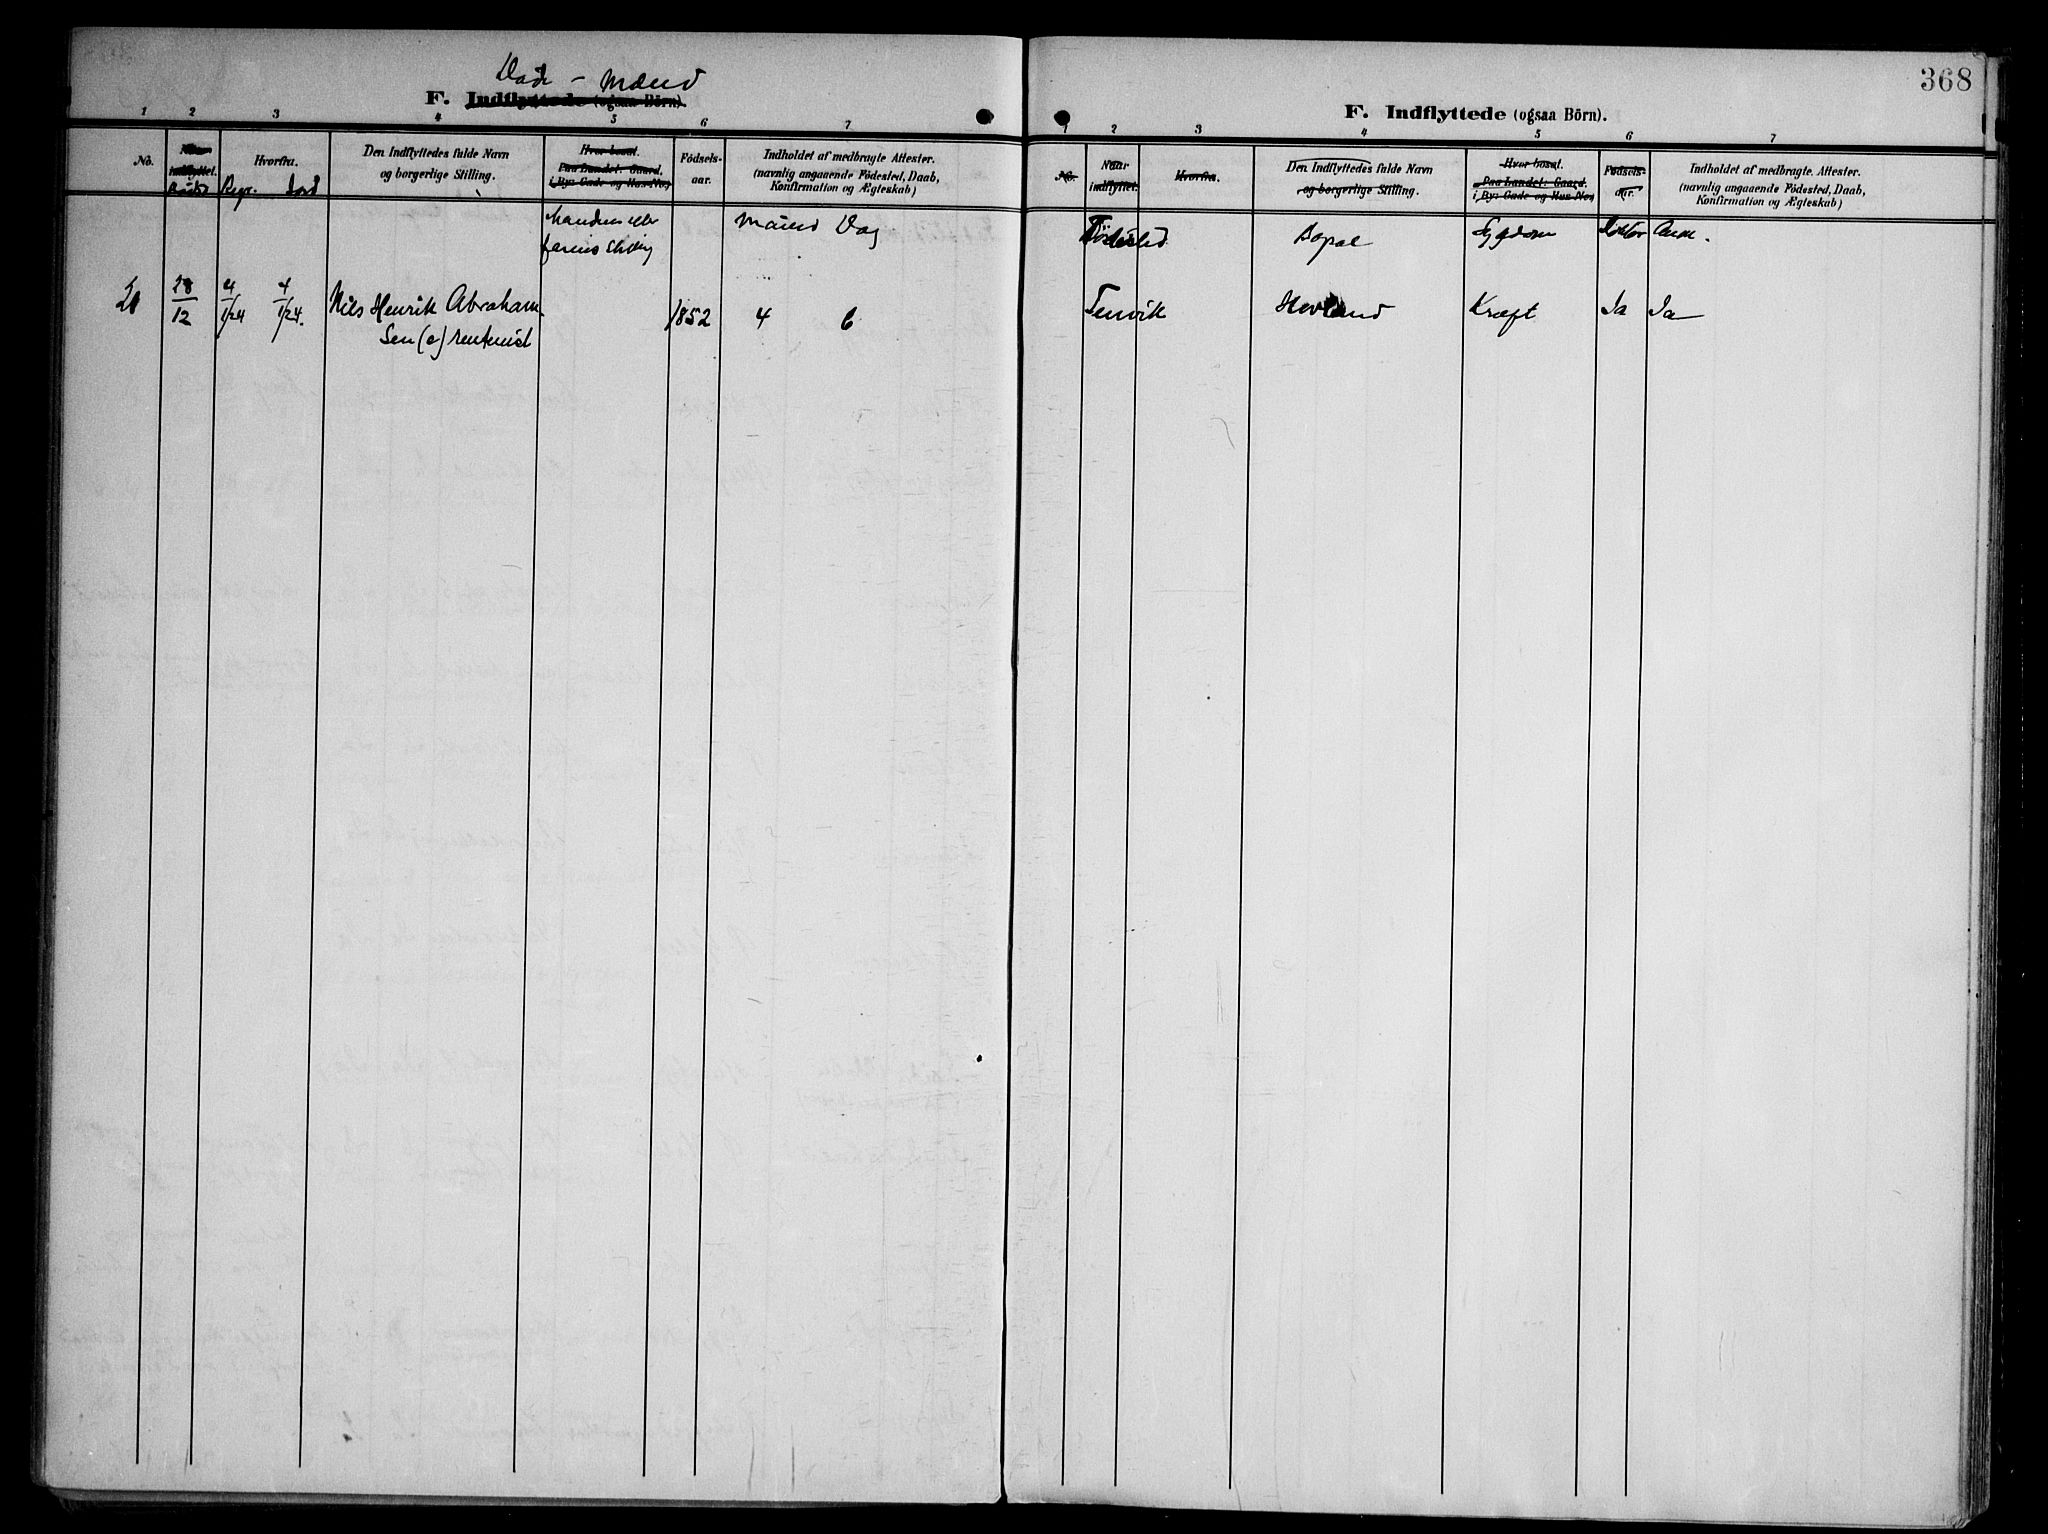 368
Døde - Mænd
F. Indflyttede (ogsaa Börn).
1 2 3 4 5 6 7
No.
Naar indflyttet.
Hvorfra.
Den Indflyttedes fulde Navn
og borgerlige Stilling.
Hvor bosat.
Paa Landet: Gaard.
i By: Gade og Hus-No.
Födsels-
aar.
Indholdet af medbragte Attester.
(navnlig angaaende Födested, Daab,
Konfirmation og Ægteskab)
Begr. Jord
Mandens eller
farens Stilling
Maaned Dag
21 28/12 4/1/24 4/1/24. Nils Henrik Abraham-
sen (e) rentenist
1852 4 6
F. Indflyttede (ogsaa Börn).
1 2 3 4 5 6 7
No.
Naar
indflyttet.
Hvorfra.
Den Indflyttedes fulde Navn
og borgerlige Stilling.
Hvor bosat.
Paa Landet: Gaard.
i By: Gade og Hus-No.
Födsels-
aar.
Indholdet af medbragte Attester.
(navnlig angaaende Födested, Daab,
Konfirmation og Ægteskab)
Födested Bopæl Sygdom Doktor Anm.
Tenvik Hovland Kræft Ja Ja